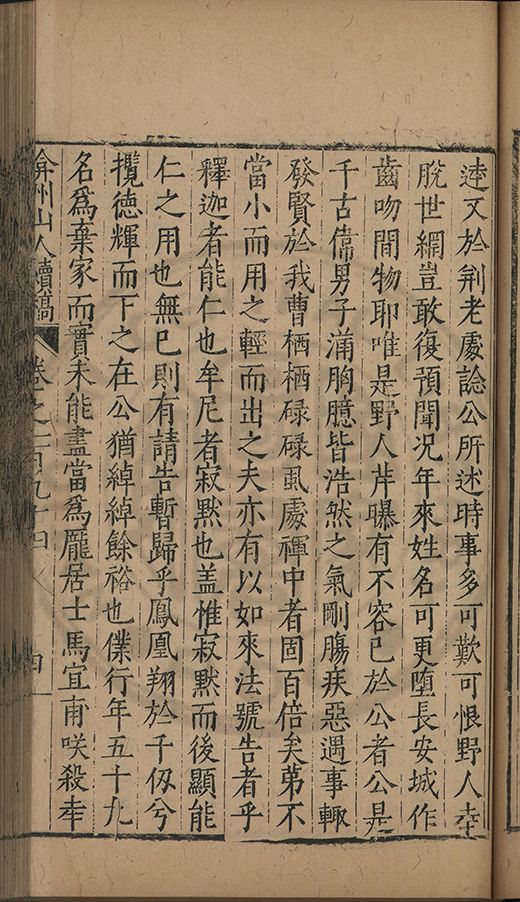 逵又於荆老處諗公所述時事多可歎可恨野人幸
脫世網豈敢復預聞况年來姓名可更墮長安城作
齒吻間物耶唯是野人芹曝有不容已於公者公是
千古偉男子滿胸臆皆浩然之氣剛腸疾惡遇事輙
發賢於我曹栖栖碌碌虱處褌中者固百倍矣苐不
當小而用之輕而出之夫亦有以如來法號告者乎
釋迦者能仁也牟尼者寂默也盖惟寂默而後顯能
仁之用也無已則有請告暫歸乎鳳凰翔於千仭兮
攬德輝而下之在公猶綽綽餘裕也僕行年五十九
名爲棄家而實未能盡當爲龐居士馬宜甫咲殺幸
弇州山人續稿 卷之一百九十四 四